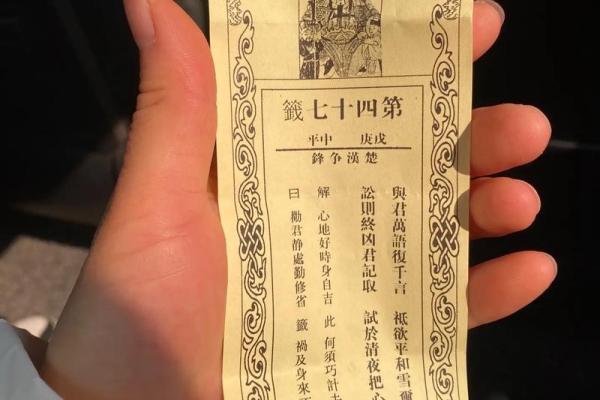 第四十七籤
戊庚 中平
楚漢争鋒
與君萬語復千言 祇欲平和雪爾
訟則終凶君記取 試於清夜把心
解 心地好時身自吉 此 何須巧計
曰 勸君静處勤修省 籤 禍及身來